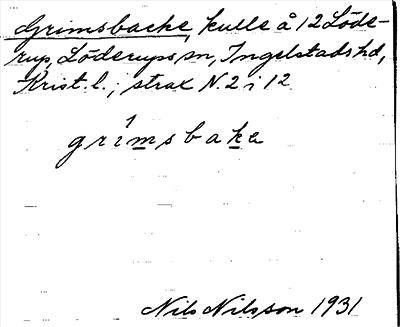 Grimsbacke, kulle å 12 Löde-
rup, Löderups sn, Ingelstads hd,
Krist. l.; strax N. 2 i 12
1
grimsbake
Nils Nilsson 1931